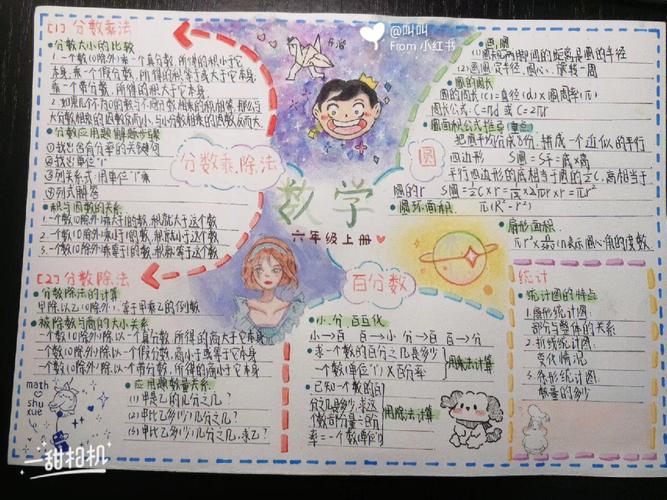 [1] 分数乘法
分数大小的比较
1.一个数(0除外)乘一个真分数,所得的积小于它
本身,乘一个假分数,所得的积等于或大于它本身,
乘一个带分数,所得的积大于它本身
2.如果几个不为0的数与不同分数相乘的积相等,那么与
大分数相乘的因数反而小,与小分数相乘的因数反而大.
分数应用题解题步骤
①找出含有分率的关键句
②找出单位"1"
③列关系式,用单位"1"乘
④列式解答
积与因数的关系
1.一个数(0除外)乘大于1的数,积就大于这个数
2.一个数(0除外)乘小于1的数,积就小于这个数
3.一个数(0除外)乘等于1的数,积就等于这个数
[2] 分数除法
分数除法的计算
甲除以乙(0除外),等于甲乘乙的倒数
被除数与商的大小关系
一个数(0除外)除以一个真分数,所得的商大于它本身
一个数(0除外)除以一个假分数,商小于或等于它本身
一个数(0除外)除以一个带分数,所得的商小于它本身
应用题数量关系
(1)甲是乙的几分之几?
(2)甲比乙多(少)几分之几?
(3)甲比乙多(少)几分之几,求乙?
math
shu
xue
一甜相机
@叫叫
From 小红书
分数乘.除法
数学
六年级上册
圆
百分数
小.分.百互化
小→百 百→小 分→百 百→分
求一个数的百分之几是多少
一个数(单位"1")×百分率
用乘法计算
已知一个数的百
分之几是多少,求这
个数部分量÷百分
率=一个数(单位1)
用除法计算
画圆
(1)圆规两脚间的距离是圆的半径
圆的周长
圆的周长(C)=直径(d)×圆周率(π)
周长公式:C=πd或C=2πr
圆面积公式推导(重点)
把圆平均分成若干份,拼成一个近似的平行
四边形 S圆=S平=底×高
平行四边形的底相当于圆的½C,高相当于
圆的r S圆=½C×r=½×2πr×r=πr²
圆环面积: π(R²-r²)
扇形面积
统计
统计图的特点
1.扇形统计图:
部分与整体的关系
2.折线统计图:
变化情况
3.条形统计图:
数量的多少